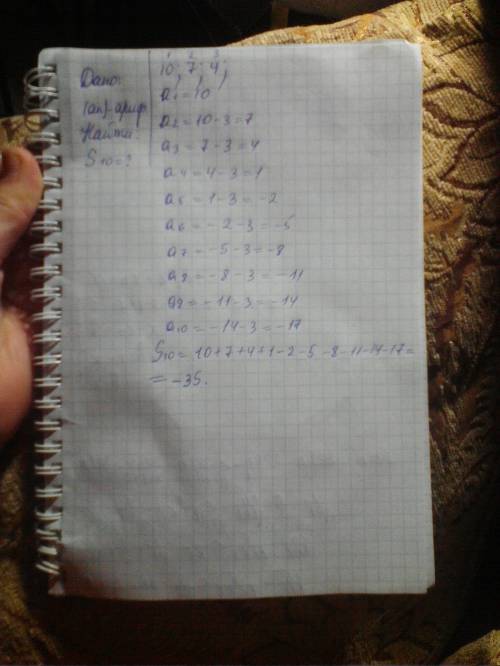 Дано:
(an)-ариф
Найти:
S10=?
10; 7; 4;
a1=10
a2=10-3=7
a3=7-3=4
a4=4-3=1
a5=1-3=-2
a6=-2-3=-5
a7=-5-3=-8
a8=-8-3=-11
a9=-11-3=-14
a10=-14-3=-17
S10=10+7+4+1-2-5-8-11-14-17=
=-35.